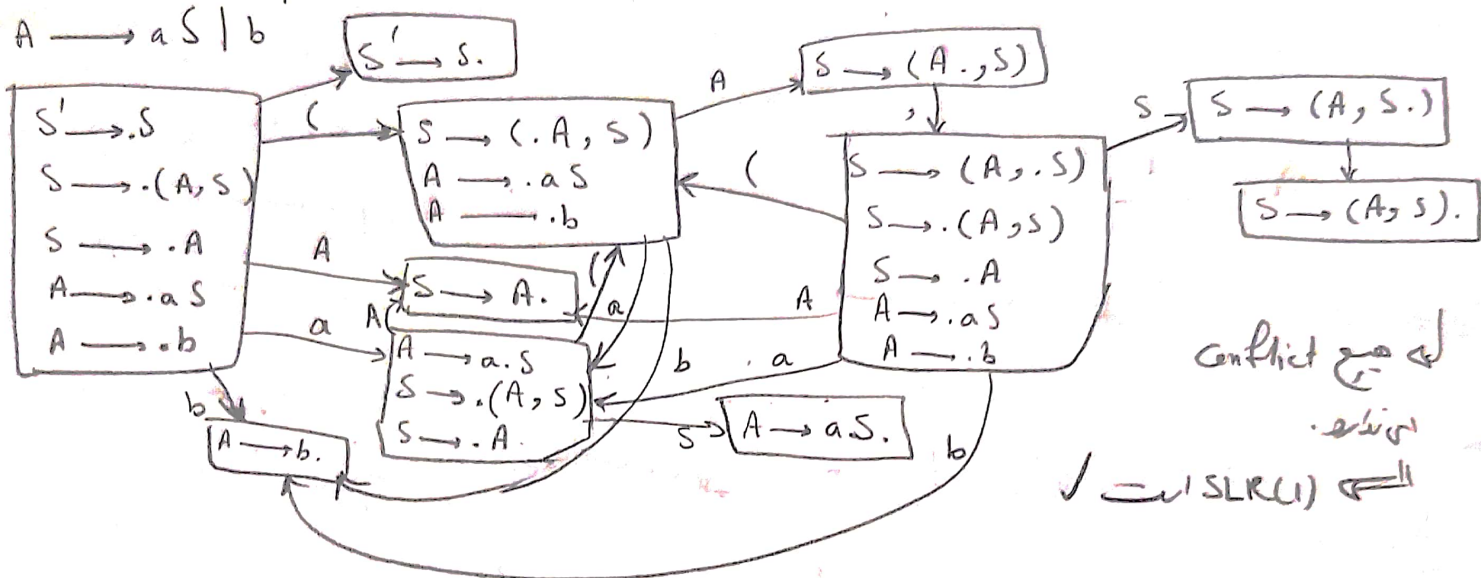 A → a S | b
S' → S.
S' → .S
S → .(A, S)
S → .A
A → .a S
A → .b
(
S → (.A, S)
A → .a S
A → .b
A
S → (A., S)
,
S → (A, .S)
S → .(A, S)
S → .A
A → .a S
A → .b
S
S → (A, S.)
S → (A, S).
(
A
S → A.
A
a
A
(
a
A → a.S
S → .(A, S)
S → .A
b
a
S
A → a S.
b
A → b.
b
هیچ conflict
ندارد.
SLR(1) است ✓